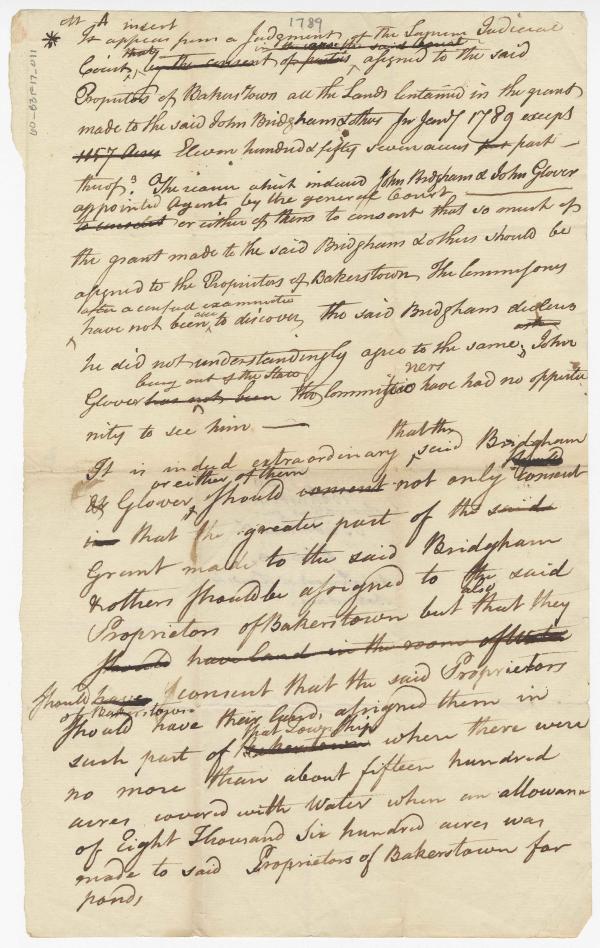 1789
60-B3F17-011
A insert
It appears from a Judgment of the Suprem Judicial
in the case the said Court
that
Court, by the consent of parties, assigned to the said
Propritors of Bakerstown all the Lands Contained in the grant
made to the said John Bridgham & others for Jany 1789 except
1157 Acres Eleven hundred & fifty seven acres part —
therof. The reason which induced John Bridgham & John Glover
appointed Agents by the general Court
to consent or either of them to consent that so much of
the grant made to the said Bridgham & others should be
assigned to the Propritors of Bakerstown The Commissioners
after a careful examination
have not been able to discover, the said Bridgham declares
he did not understandingly agree to the same, John
being out of the State
Glover has not been the Commissioners have had no opportu
nity to see him —
It is indeed extraordinary that the said Bridgham
or either of them
& Glover, should consent not only should consent
in that the greater part of the said
Grant made to the said Bridgham
& others should be assigned to the said
also
Proprietors of Bakerstown but that they
should have land in the room of
should have consent that the said Proprietors
of Bakerstown
should have their Land, assigned them in
that Township
such part of Bakerstown where there were
no more than about fifteen hundred
acres covered with Water when an allowance
of Eight Thousand Six hundred acres was
made to said Proprietors of Bakerstown for
ponds